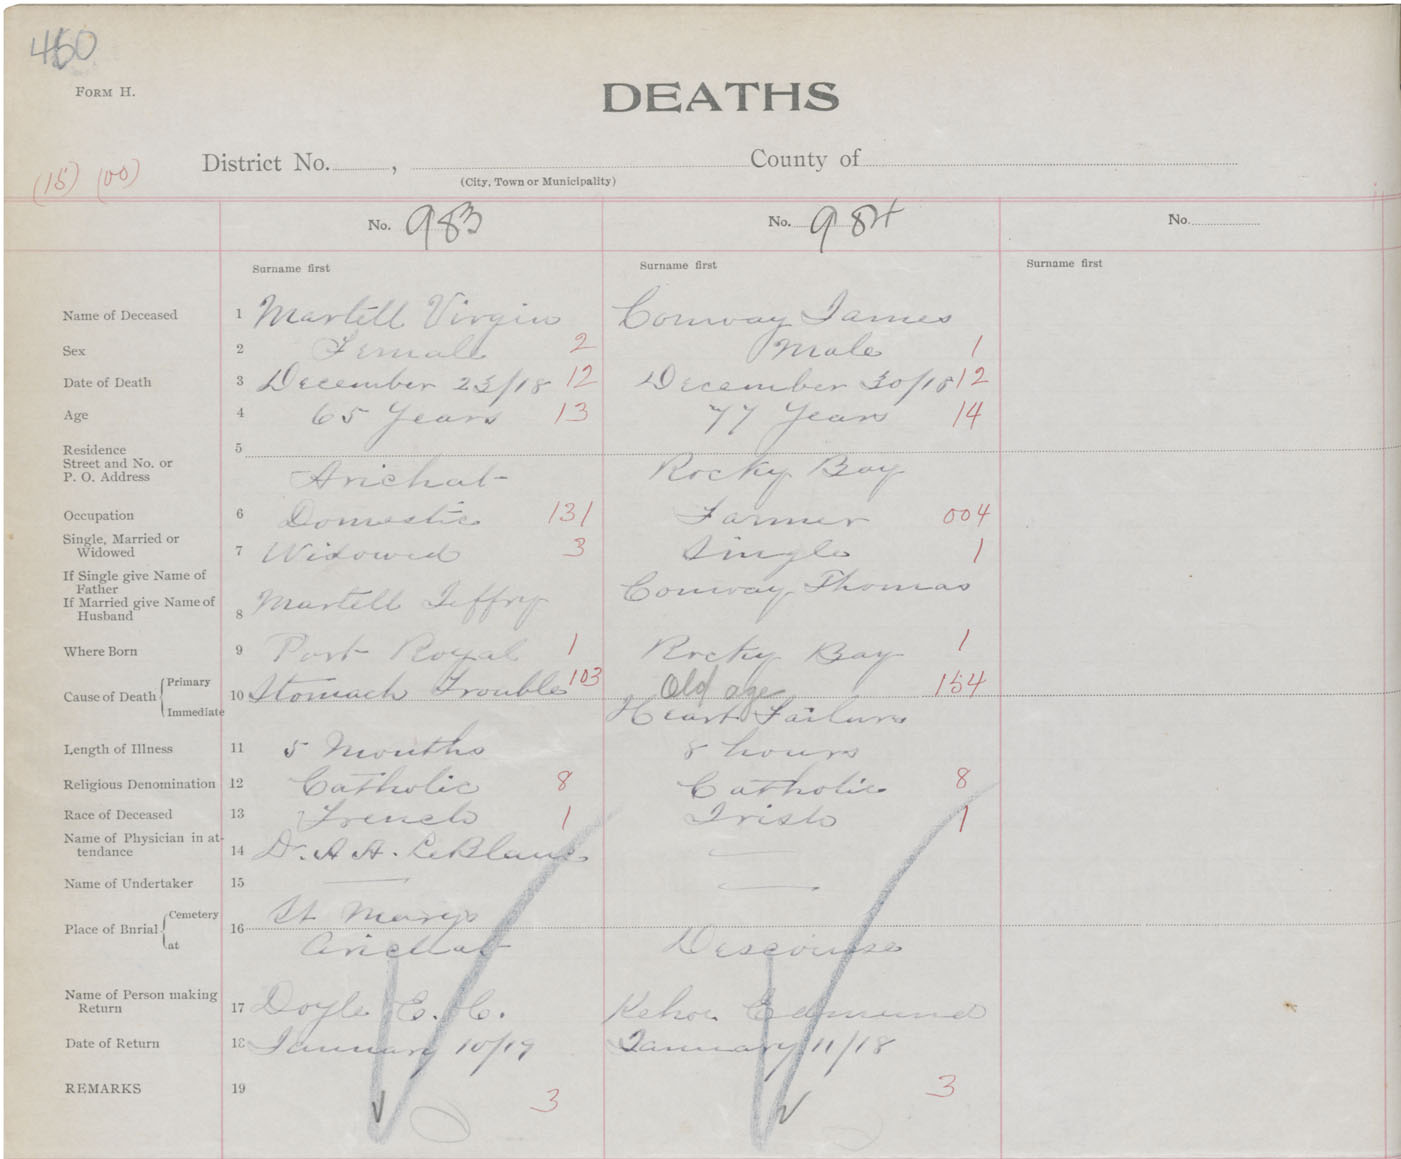 450
FORM H.
DEATHS
District No. , County of
(City, Town or Municipality)
(15) (00)
No. 983 No. 984 No.
Surname first Surname first Surname first
Name of Deceased 1 Martell Virgin Conway James
Sex 2 Female 2 Male 1
Date of Death 3 December 23/18 12 December 30/18 12
Age 4 65 Years 13 77 Years 14
Residence
Street and No. or
P. O. Address
5 Arichat Rocky Bay
Occupation 6 Domestic 131 Farmer 004
Single, Married or
Widowed
7 Widowed 3 Single 1
If Single give Name of
Father
If Married give Name of
Husband
8 Martell Jeffry Conway Thomas
Where Born 9 Port Royal 1 Rocky Bay 1
Cause of Death Primary
Immediate
10 Stomach Trouble 103 Old age 154
Heart Failure
Length of Illness 11 5 Months 8 hours
Religious Denomination 12 Catholic 8 Catholic 8
Race of Deceased 13 French 1 Irish 1
Name of Physician in at-
tendance
14 Dr. A A. LeBlanc —
Name of Undertaker 15 — —
Place of Burial Cemetery
at
16 St Marys
Arichat Descouse
Name of Person making
Return
17 Doyle E. C. Kehoe Edmund
Date of Return 18 January 10/19 January 11/18
REMARKS 19 3 3